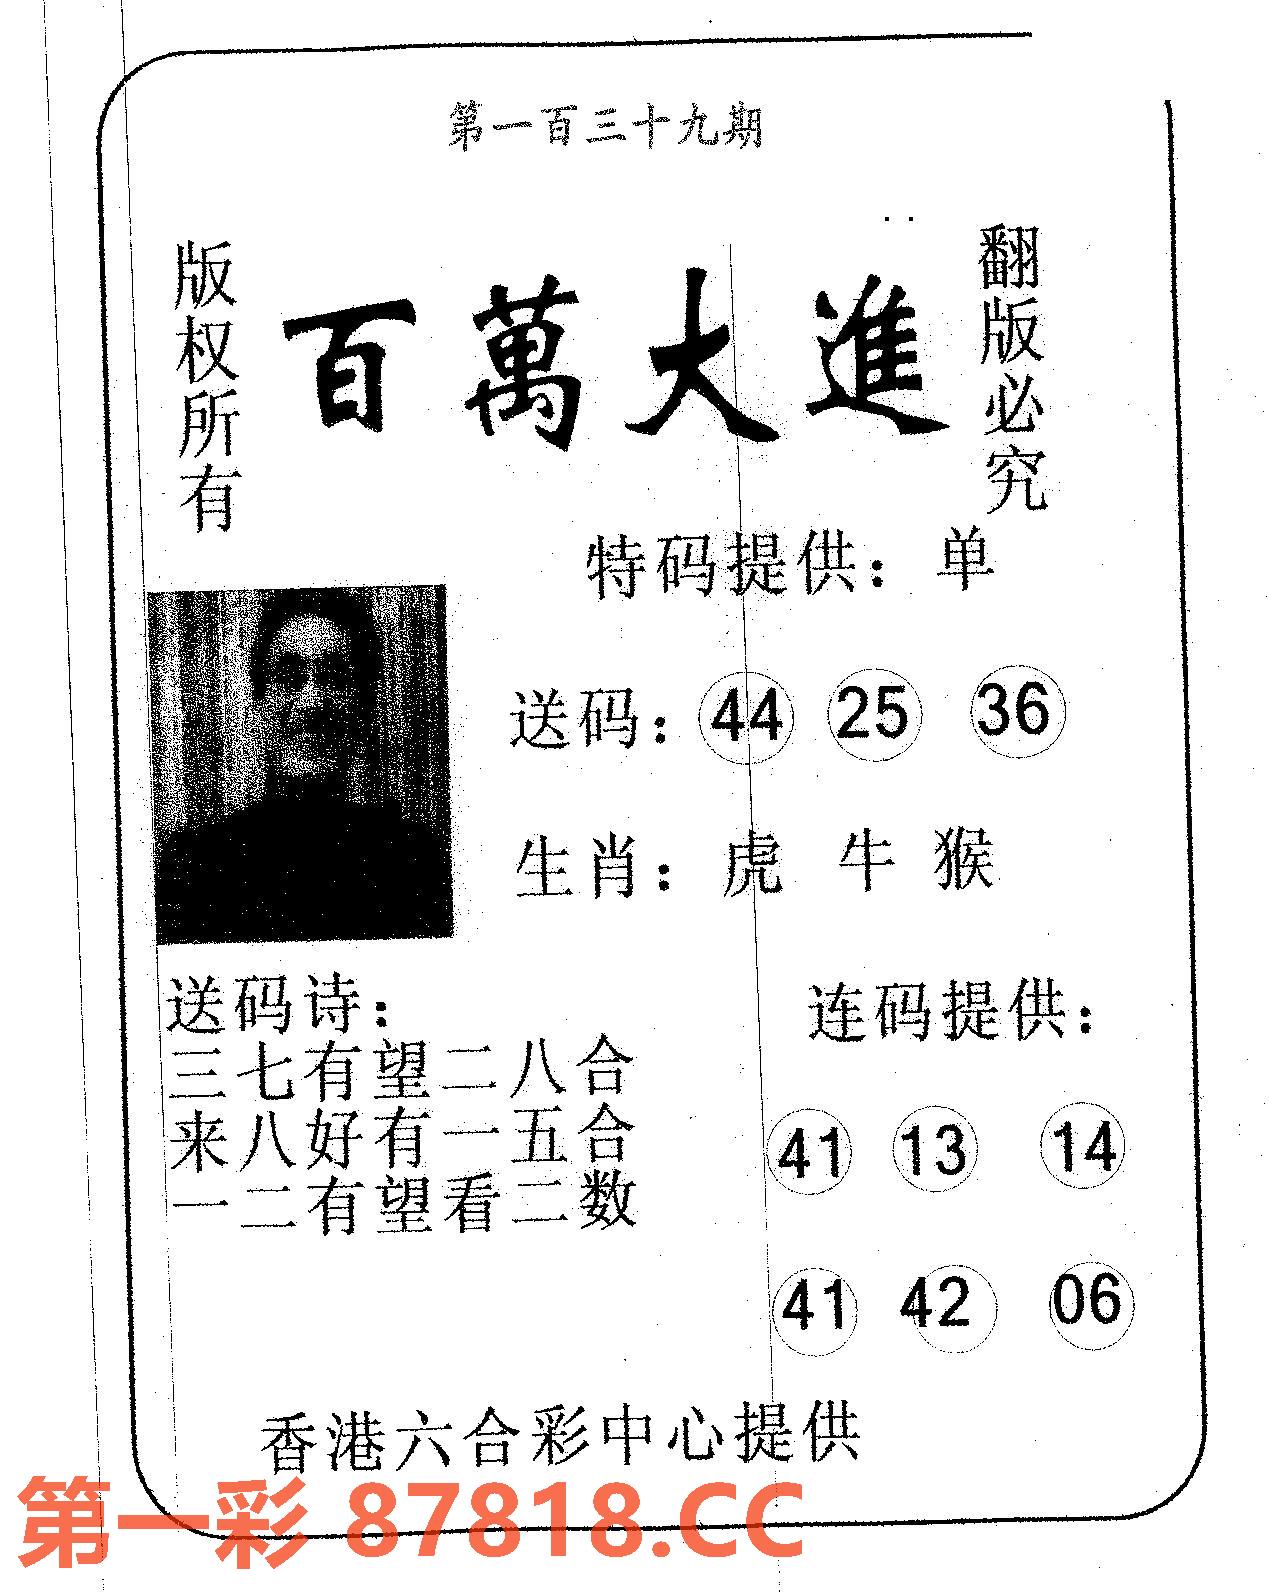 第一百三十九期
版权所有
百萬大進
翻版必究
特码提供：单
送码：44 25 36
生肖：虎 牛 猴
送码诗：
三七有望二八合
来八好有一五合
一二有望看二数
连码提供：
41 13 14
41 42 06
香港六合彩中心提供
第一彩 87818.CC